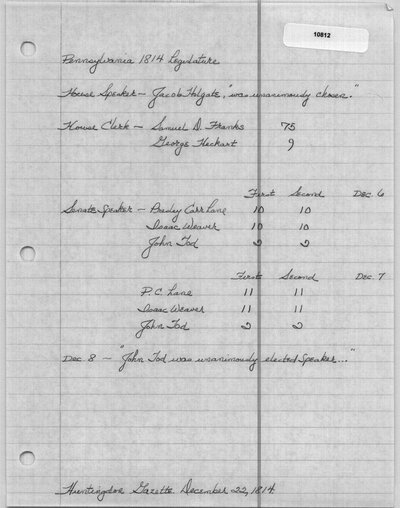 10812
Pennsylvania 1814 Legislature
House Speaker - Jacob Holgate, "was unanimously chosen."
House Clerk - Samuel D. Franks 75
George Heckert 9
First Second Dec. 6
Senate Speaker - Presley Carr Lane 10 10
Isaac Weaver 10 10
John Tod 2 2
First Second Dec. 7
P.C. Lane 11 11
Isaac Weaver 11 11
John Tod 2 2
Dec 8 - "John Tod was unanimously elected Speaker..."
Huntingdon Gazette. December 22, 1814